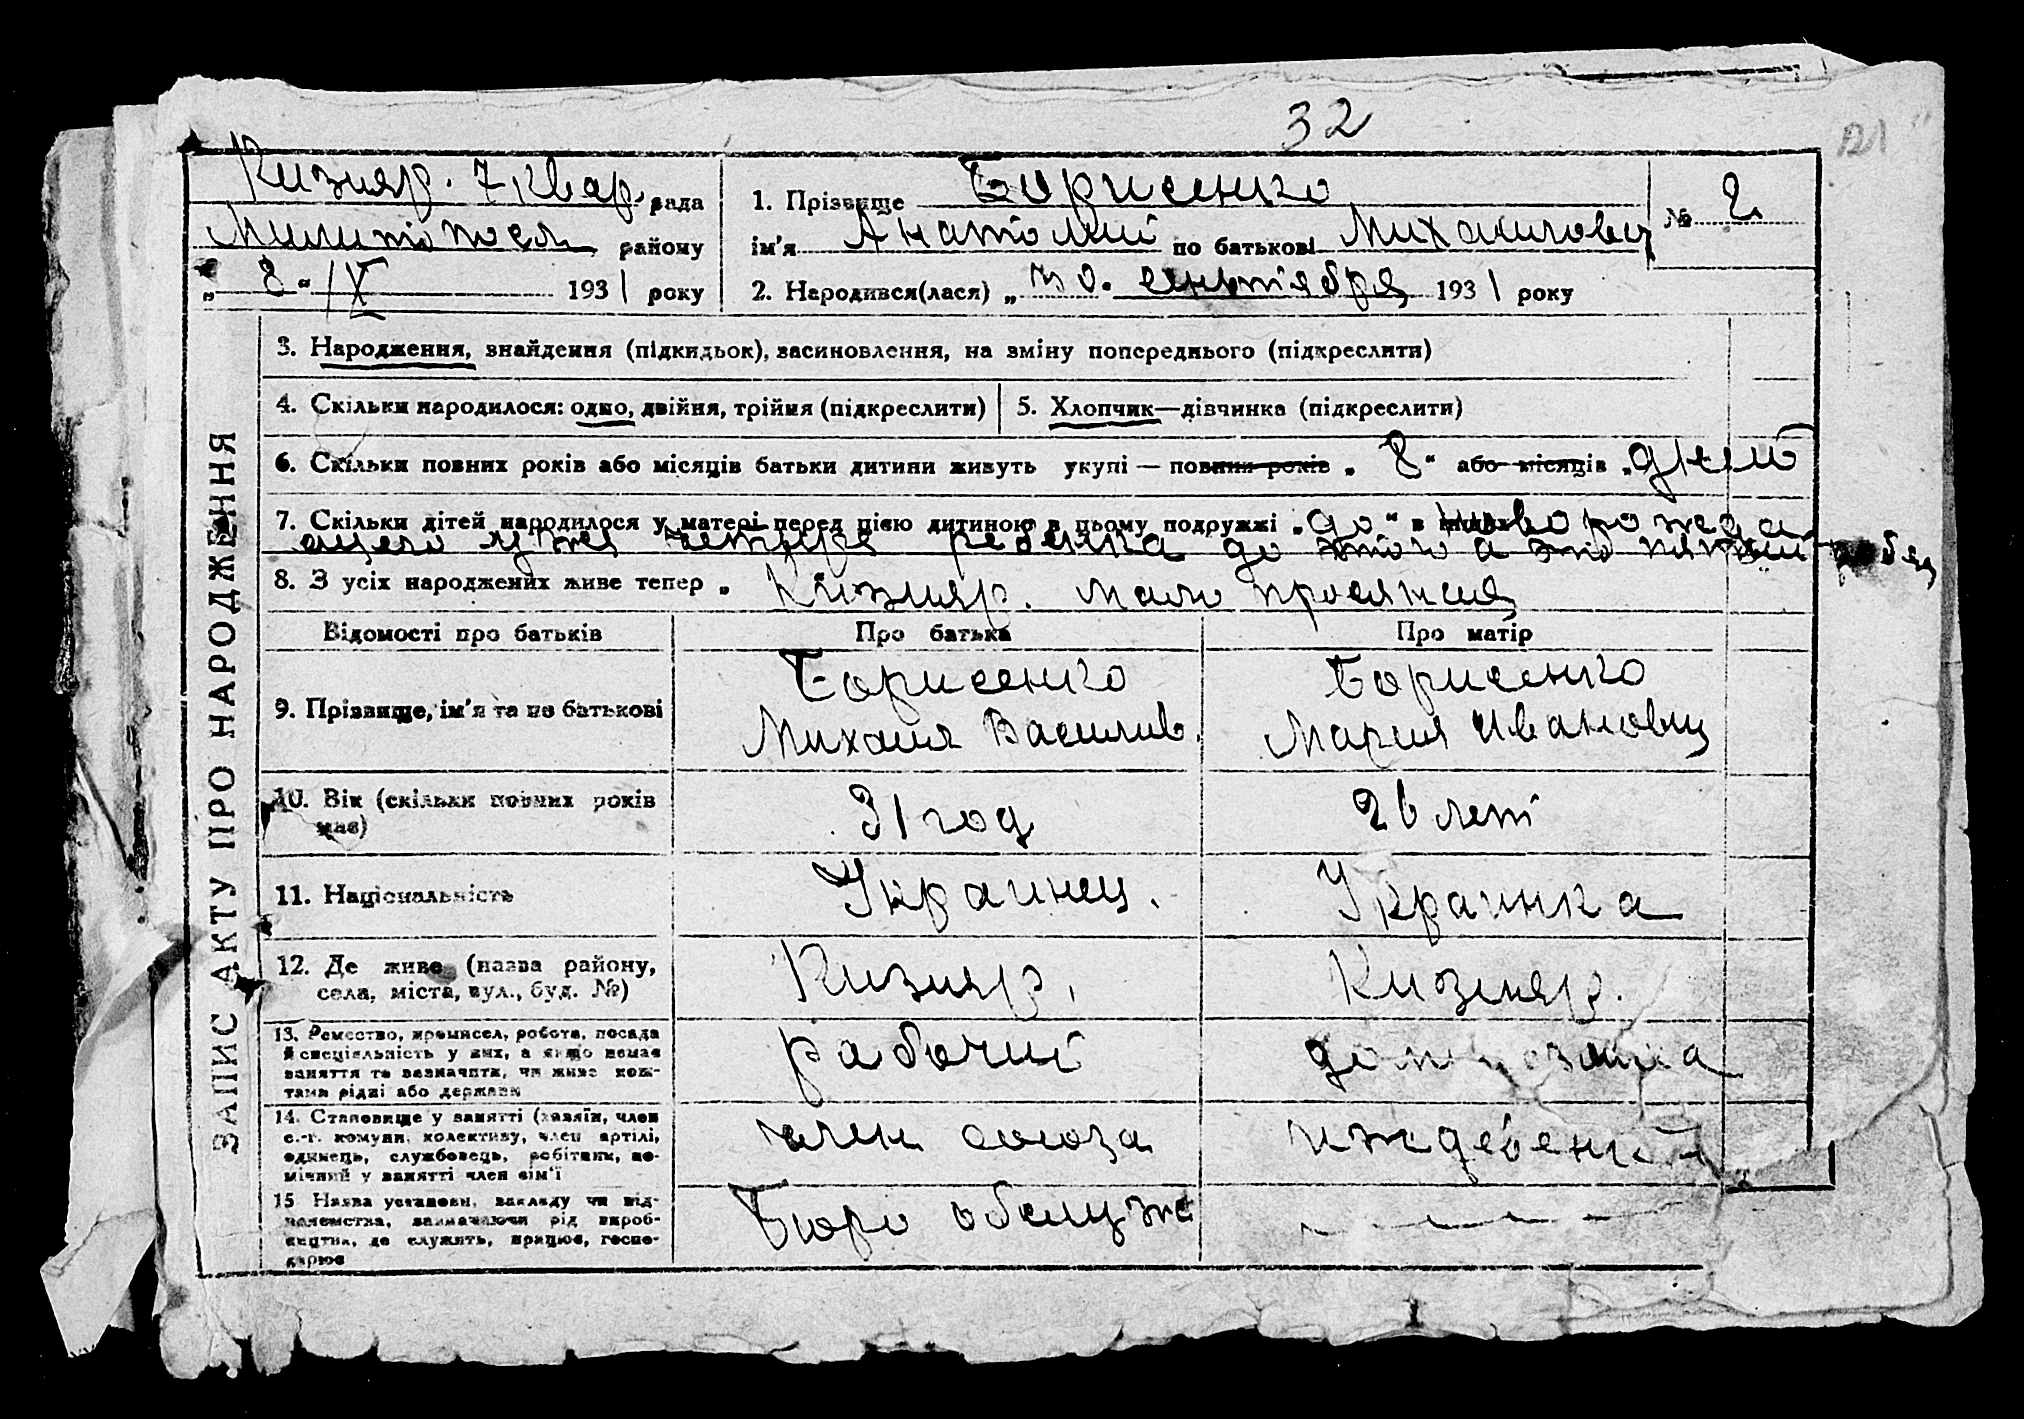 32
121
Кизияр. 7 квар. рада
Мелитопол району
„ 8 “ IX 1931 року
1. Прізвище Борисенко
ім'я Анатолий по батькові Михайлович
№ 2
2. Народився(лася) „ 30. сентября 1931 року
ЗАПИС АКТУ ПРО НАРОДЖЕННЯ
3. Народження, знайдення (підкидьок), засиновлення, на зміну попереднього (підкреслити)
4. Скільки народилося: одно, двійня, трійня (підкреслити)
5. Хлопчик—дівчинка (підкреслити)
6. Скільки повних років або місяців батьки дитини живуть укупі — повних років „ 8 “ або місяців „ дней
7. Скільки дітей народилося у матері перед цією дитиною в цьому подружжі „ до “ в новорожда
ющего уже четыре ребенка до этого а это пятый ребен
8. З усіх народжених живе тепер „ Кизияр. мало
Відомості про батьків
Про батька
Про матір
9. Прізвище, ім'я та по батькові
Борисенко
Михаил Василив.
Борисенко
Мария Ивановн
10. Вік (скільки повних років
має)
31 год
26 лет
11. Національність
Украинец.
Украинка
12. Де живе (назва району,
села, міста, вул., буд. №)
Кизияр.
Кизияр.
13. Ремество, промисел, робота, посада
й спеціяльність у них, а якщо немає
заняття то зазначити, чи живе кош-
тами рідні або держави
рабочий
домохозяйка
14. Становище у занятті (хазяїн, член
с.-г. комуни, колективу, член артілі,
одинець, службовець, робітник, по-
мічний у занятті член сім'ї
член союза
иждевений
15 Назва установи, закладу чи під-
приємства, зазначаючи рід вироб-
ництва, де служить, працює, госпо-
дарює
Бюро обслуж